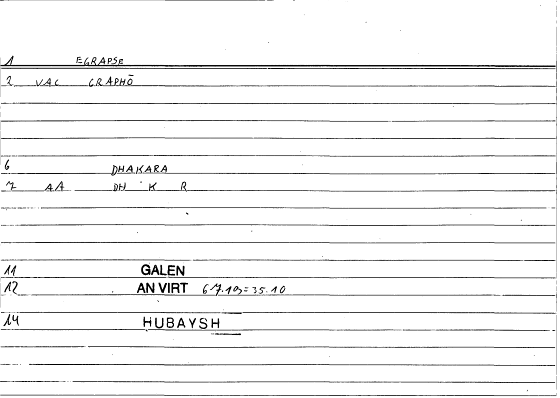 1 EGRAPSE
2 VAC GRAPHŌ
6 DHAKARA
7 AA DH K R
11 GALEN
12 AN VIRT 67.19=35.10
14 HUBAYSH